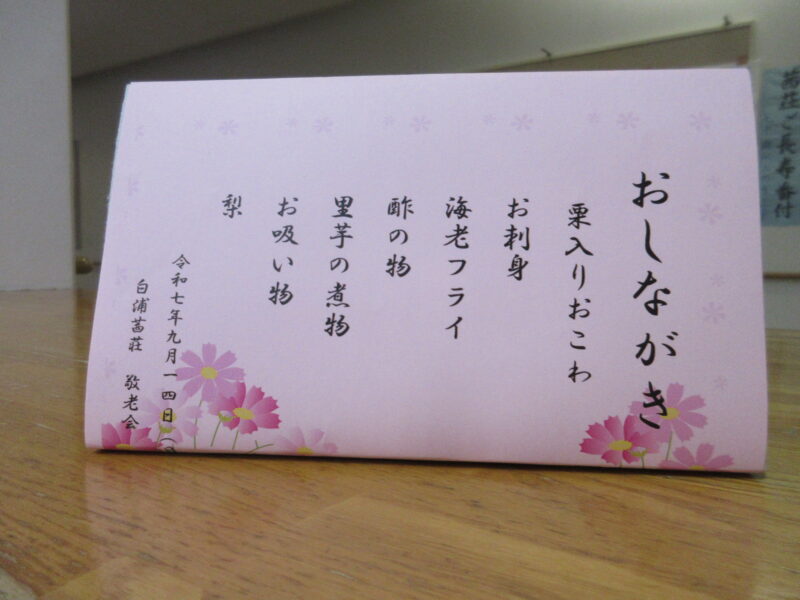 おしながき
栗入りおこわ
お刺身
海老フライ
酢の物
里芋の煮物
お吸い物
梨
令和七年九月一四日（
白浦茜荘　敬老会
茜荘ご長寿番付